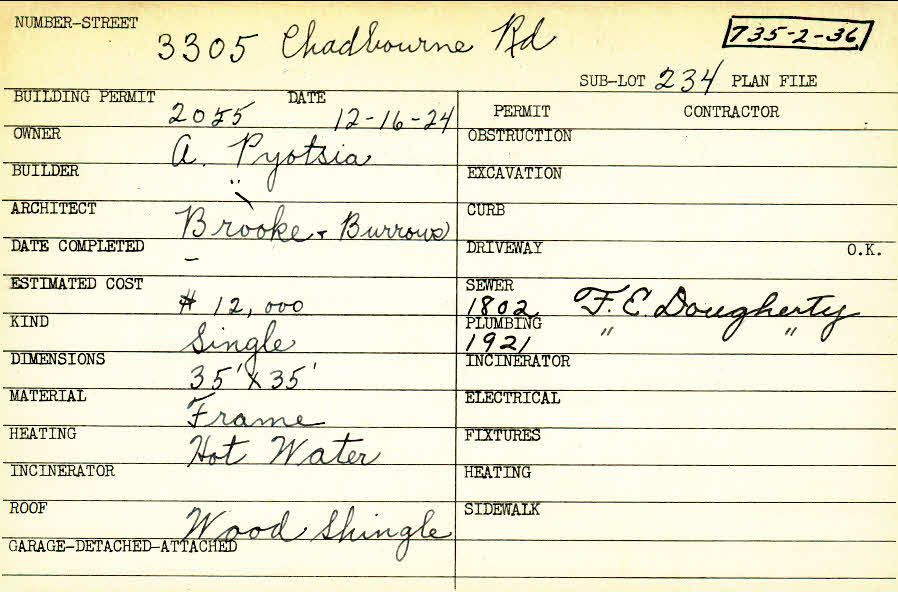 NUMBER-STREET 3305 Chadbourne Rd 735-2-36
SUB-LOT 234 PLAN FILE
BUILDING PERMIT 2055 DATE 12-16-24
PERMIT CONTRACTOR
OWNER A. Pyotsia
OBSTRUCTION
BUILDER "
EXCAVATION
ARCHITECT Brooke + Burrows
CURB
DATE COMPLETED -
DRIVEWAY O.K.
ESTIMATED COST $ 12,000
SEWER 1802 F. E. Dougherty
KIND Single
PLUMBING 1921 " "
DIMENSIONS 35' x 35'
INCINERATOR
MATERIAL Frame
ELECTRICAL
HEATING Hot Water
FIXTURES
INCINERATOR
HEATING
ROOF Wood Shingle
SIDEWALK
GARAGE-DETACHED-ATTACHED